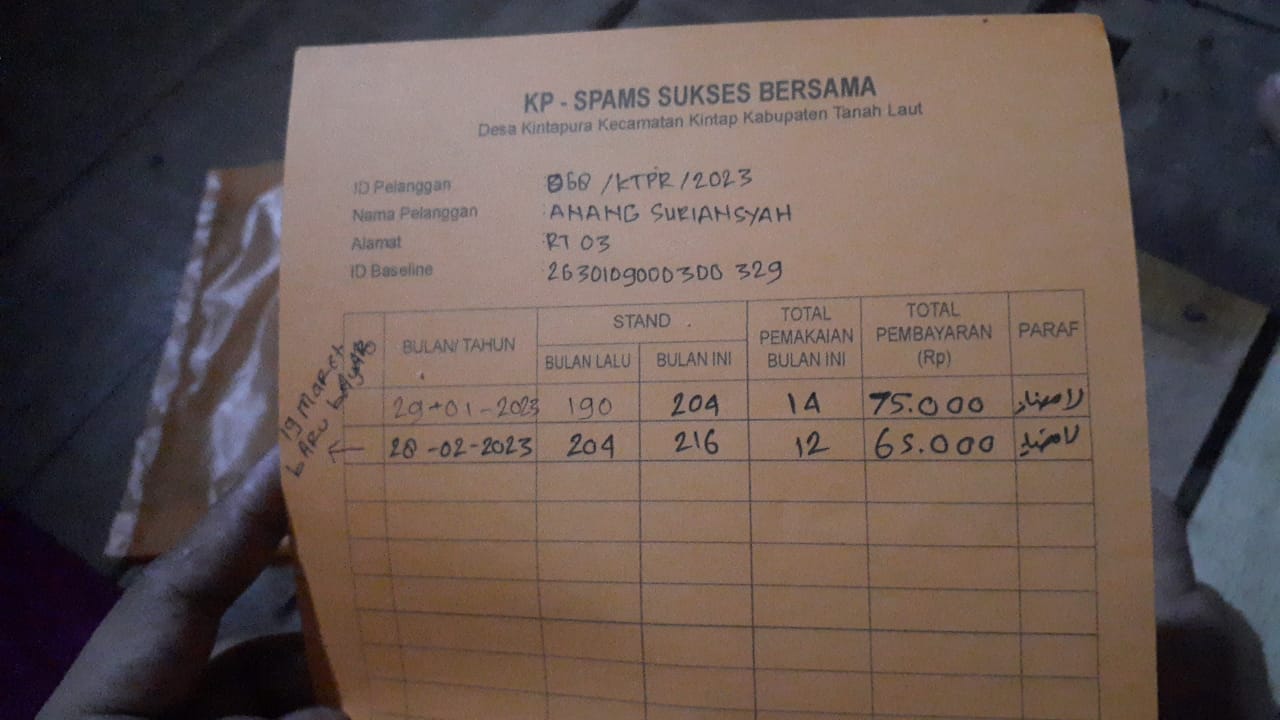 KP - SPAMS SUKSES BERSAMA
Desa Kintapura Kecamatan Kintap Kabupaten Tanah Laut
ID Pelanggan 068 /KTPR/2023
Nama Pelanggan : ANANG SURIANSYAH
Alamat : RT 03
ID Baseline : 2630109000300 329
BULAN/ TAHUN STAND TOTAL PEMAKAIAN BULAN INI TOTAL PEMBAYARAN (Rp) PARAF
BULAN LALU BULAN INI
29-01-2023 190 204 14 75.000
28-02-2023 204 216 12 65.000
19 Maret
bARU bAyAR